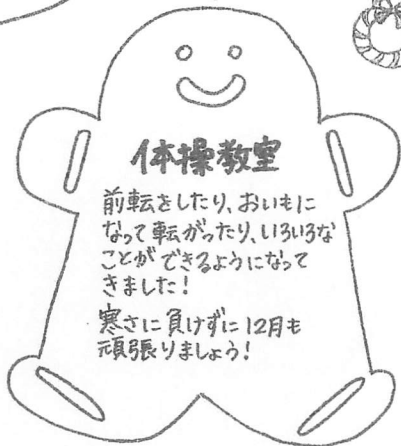 体操教室
前転をしたり、おいもに
なって転がったり、いろいろな
ことができるようになって
きました!
寒さに負けずに12月も
頑張りましょう!